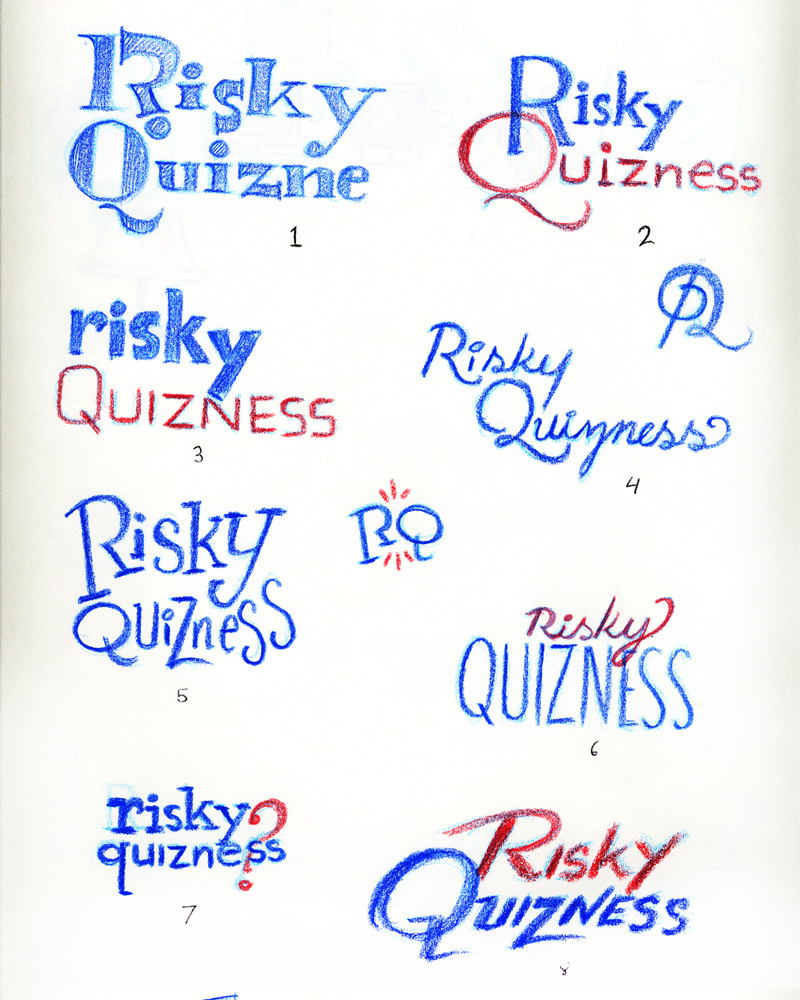 Risky
Quizne
1
Risky
Quizness
2
risky
QUIZNESS
3
RQ
Risky
Quizness
4
Risky
QUIZneSS
5
RQ
Risky
QUIZNESS
6
risky?
quizness
7
Risky
QUIZNESS
8